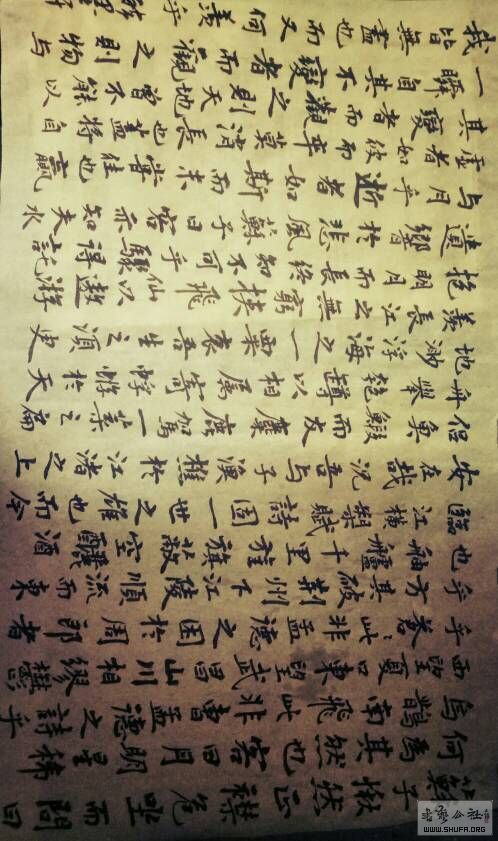 蘇子愀然正襟危坐而問曰
何為其然也客曰月明星稀
烏鵲南飛此非曹孟德之詩乎
西望夏口東望武昌山川相繆鬱
乎蒼蒼此非孟德之困於周郎者
乎方其破荊州下江陵順流而東
也舳艫千里旌旗蔽空釃酒
臨江橫槊賦詩固一世之雄也而今
安在哉況吾與子漁樵於江渚之上
侶魚鰕而友麋鹿駕一葉之扁
舟舉匏樽以相屬寄蜉蝣於天
地渺浮海之一粟哀吾生之須臾
羨長江之無窮挾飛仙以遨游
抱明月而長終知不可乎驟得託
遺響於悲風蘇子曰客亦知夫水
與月乎逝者如斯而未嘗往也贏
虛者如彼而卒莫消長也蓋將自
其變者而觀之則天地曾不能以
一瞬自其不變者而觀之則物與
我皆無盡也而又何羨乎
书法公社
WWW.SHUFA.ORG